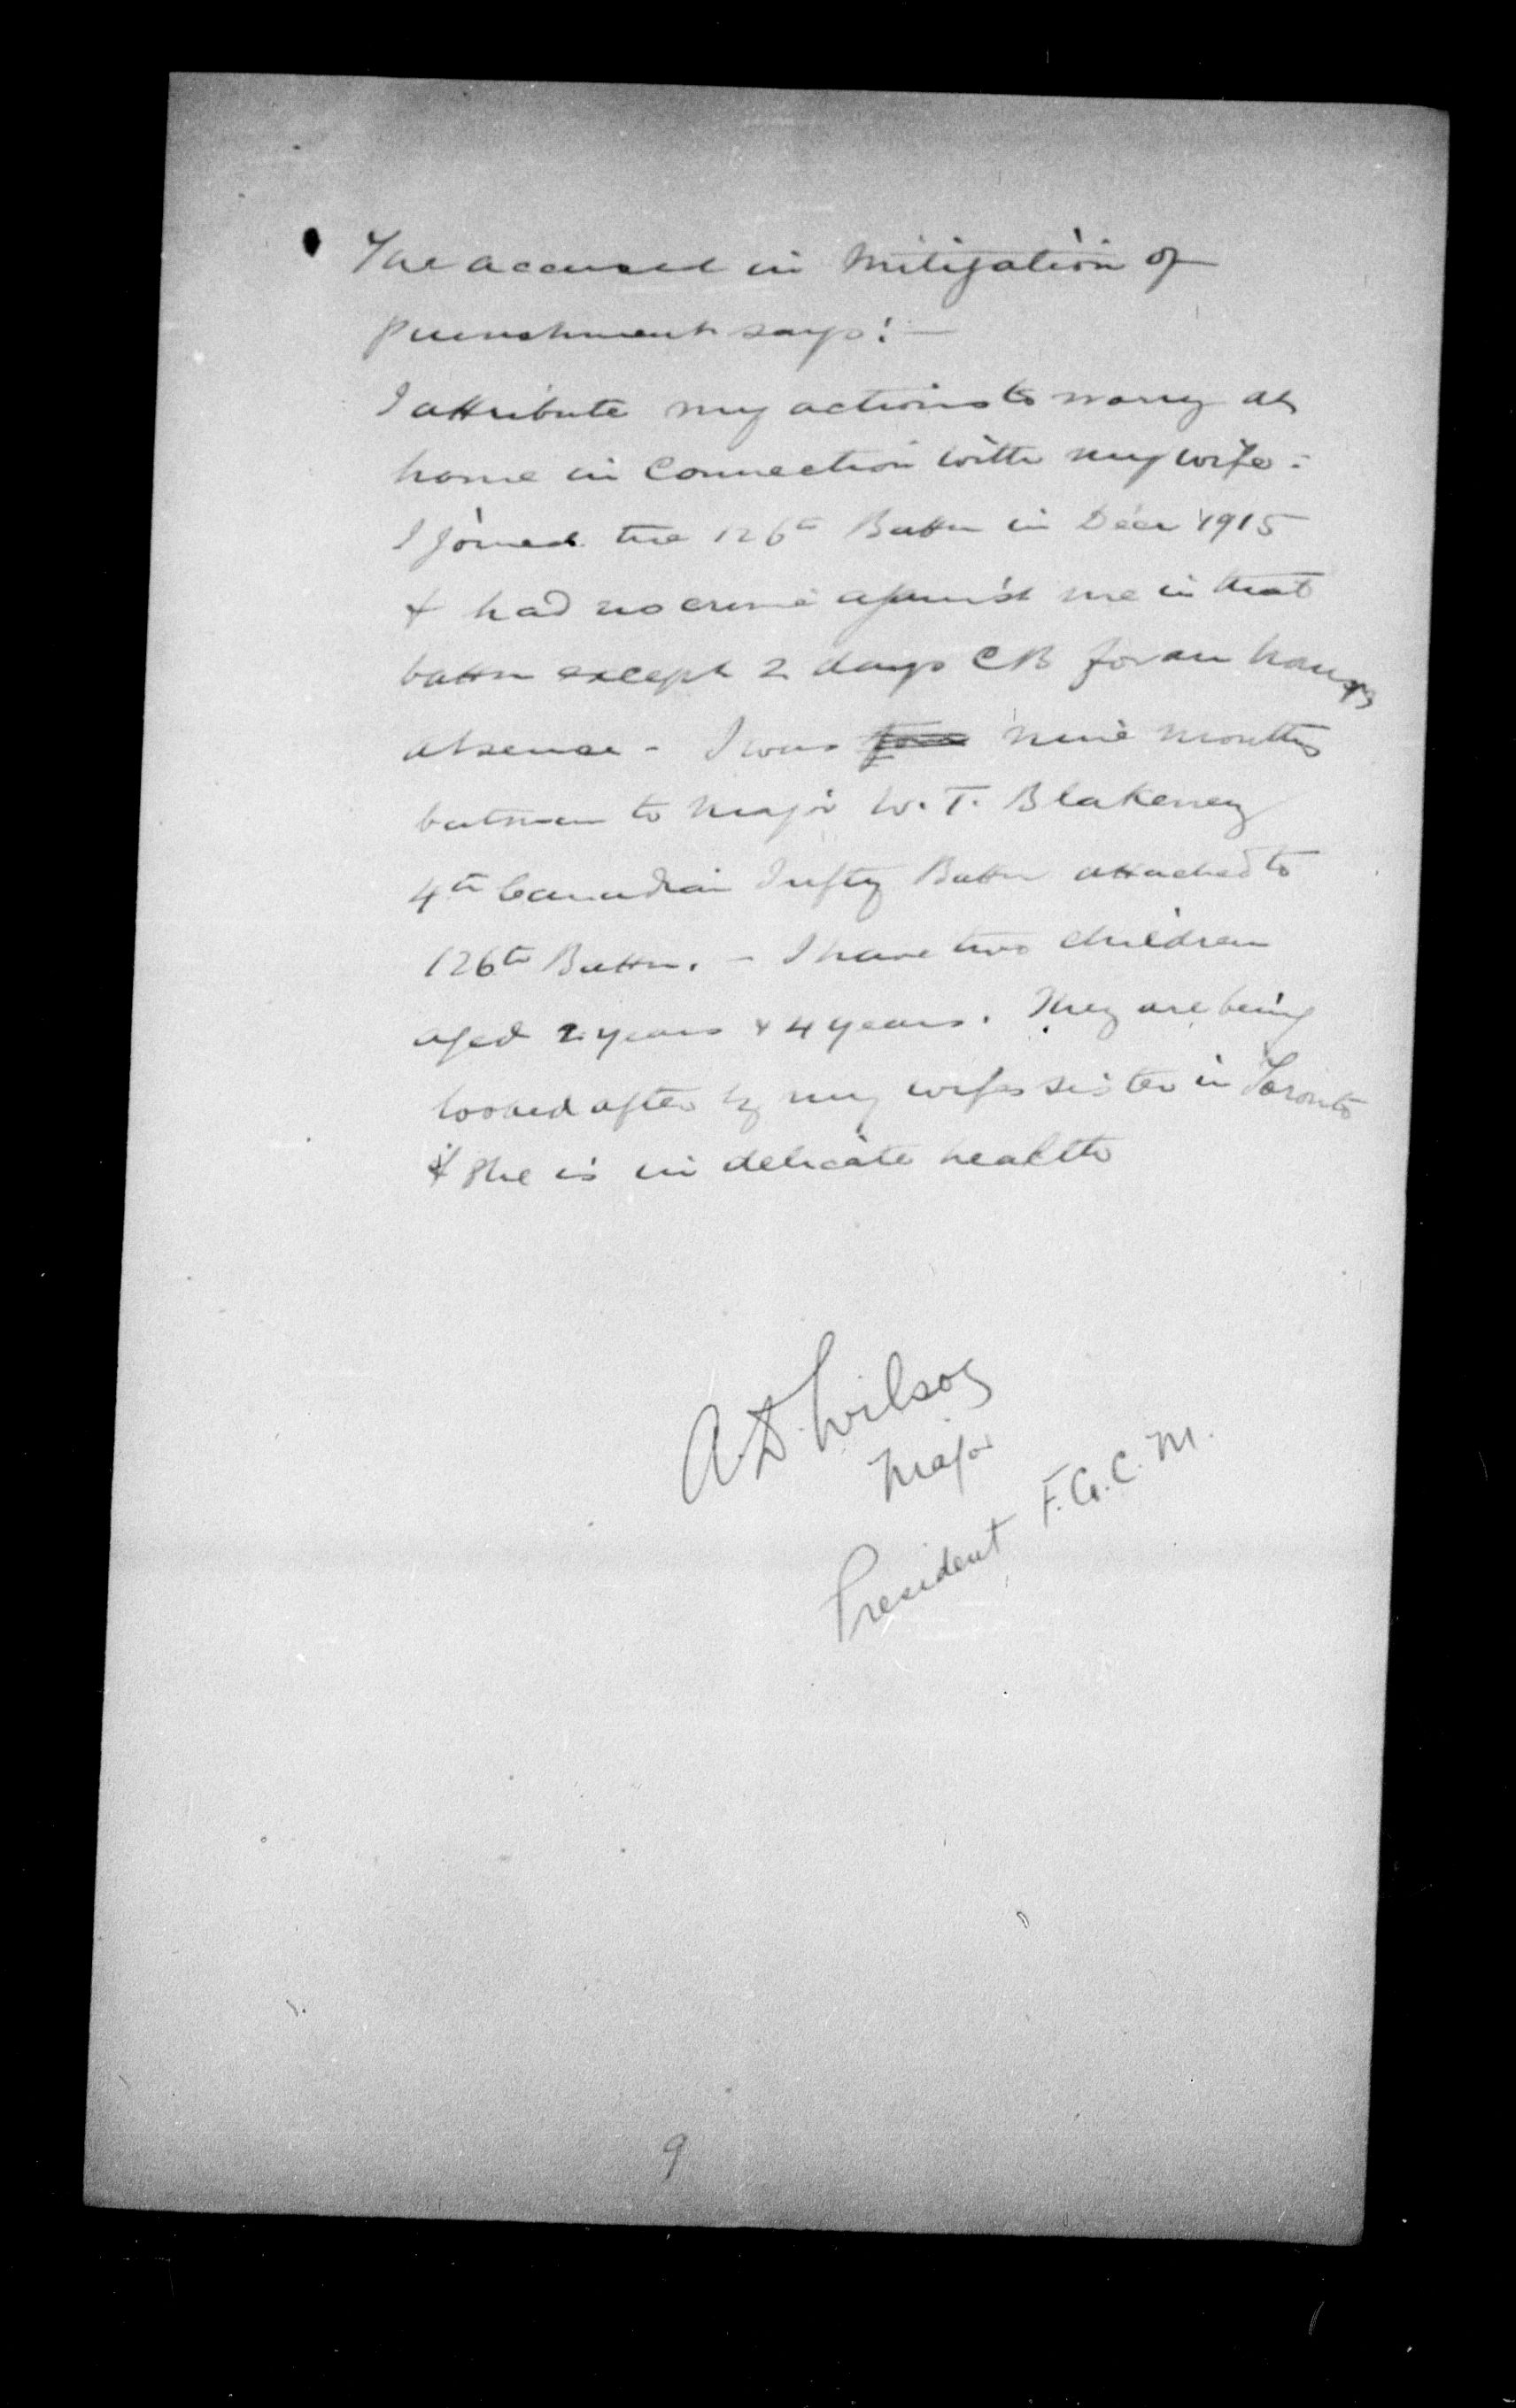 The accused in mitigation of
punishment says:—
I attribute my actions to worry at
home in connection with my wife.
I joined the 126th Battn in Decr 1915
& had no crime against me in that
battn except 2 days CB for an hours
absence - I was nine months
batman to Major W. T. Blakeney
4th Canadian Infty Battn attached to
126th Battn. - I have two children
aged 2 years & 4 years. They are being
looked after by my wifes sister in Toronto
& she is in delicate health
A.D. Wilson
Major
President F.G.C.M.
9